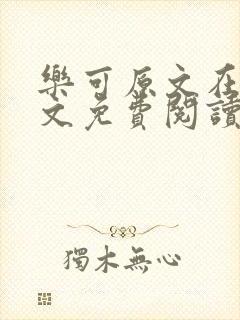 樂可原文在
文免費閱讀
獨木無心